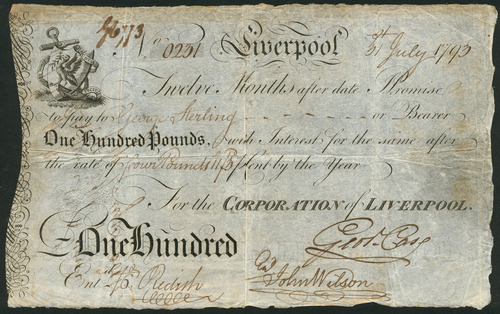 No 0231 Liverpool 5th July 1793
Twelve Months after date I Promise
to pay to George Sterling - - - - - - or Bearer
One Hundred Pounds, with Interest for the same after
the rate of Four Pounds 10/ P Cent by the Year
For the CORPORATION of LIVERPOOL.
£ One Hundred
Geo. Case
Ent.
John Wilson